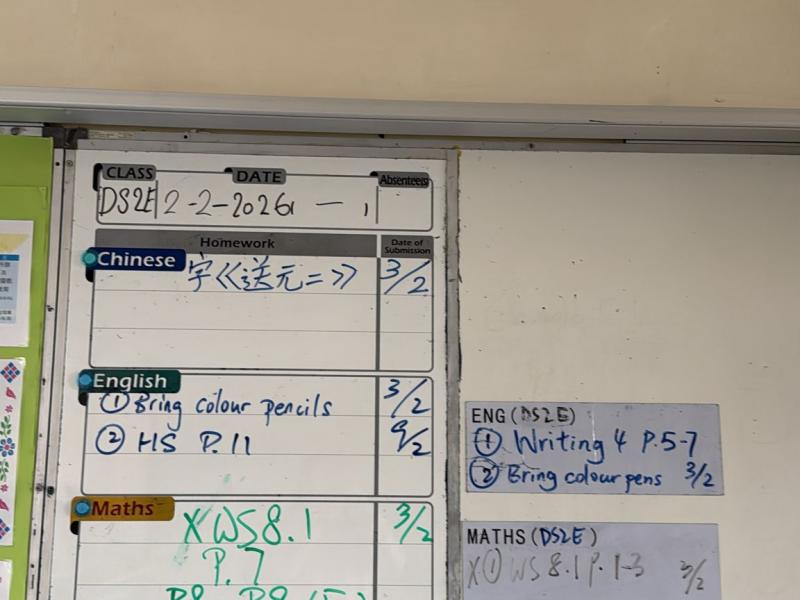 CLASS DATE Absenteers
DS2E 2-2-2026
Homework Date of Submission
Chinese
字《送元二》 3/2
English
① Bring colour pencils 3/2
② HS P.11 9/2
Maths
X WS 8.1 3/2
P.7
ENG (DS2E)
① Writing 4 P.5-7
② Bring colour pens 3/2
MATHS (DS2E)
X ① WS 8.1 P.1-3 3/2